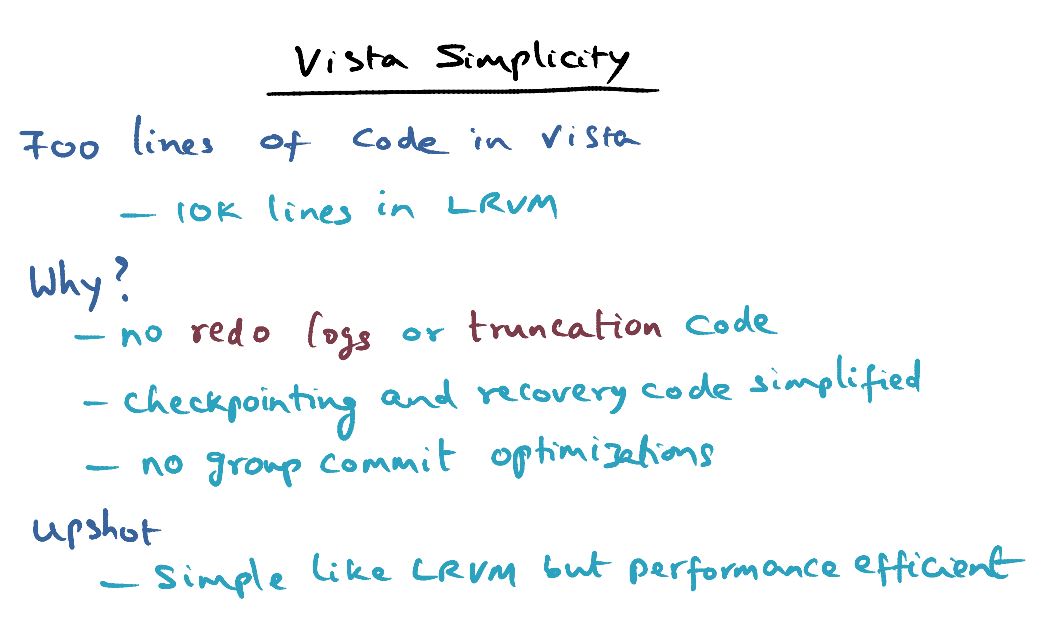 Vista Simplicity
700 lines of code in Vista
— 10K lines in LRVM
Why?
— no redo logs or truncation code
— checkpointing and recovery code simplified
— no group commit optimizations
upshot
— Simple like LRVM but performance efficient